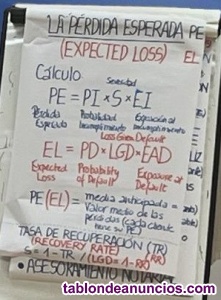 LA PÉRDIDA ESPERADA PE
(EXPECTED LOSS) EL
Cálculo
Severidad
PE = PI x S x EI
Pérdida Probabilidad Exposición al
Esperada Incumplimiento incumplimiento
Loss Given Default
EL = PD x LGD x EAD
Expected Probability Exposure at
Loss of Default Default
PE (EL) = media anticipada =
Valor medio de las
pérdidas (cada cliente
tiene su PE)
TASA DE RECUPERACIÓN (TR)
(RECOVERY RATE)
S = 1 - TR / (LGD = 1 - RR)
• ASESORAMIENTO NOTARIAL
tablondeanuncios.com